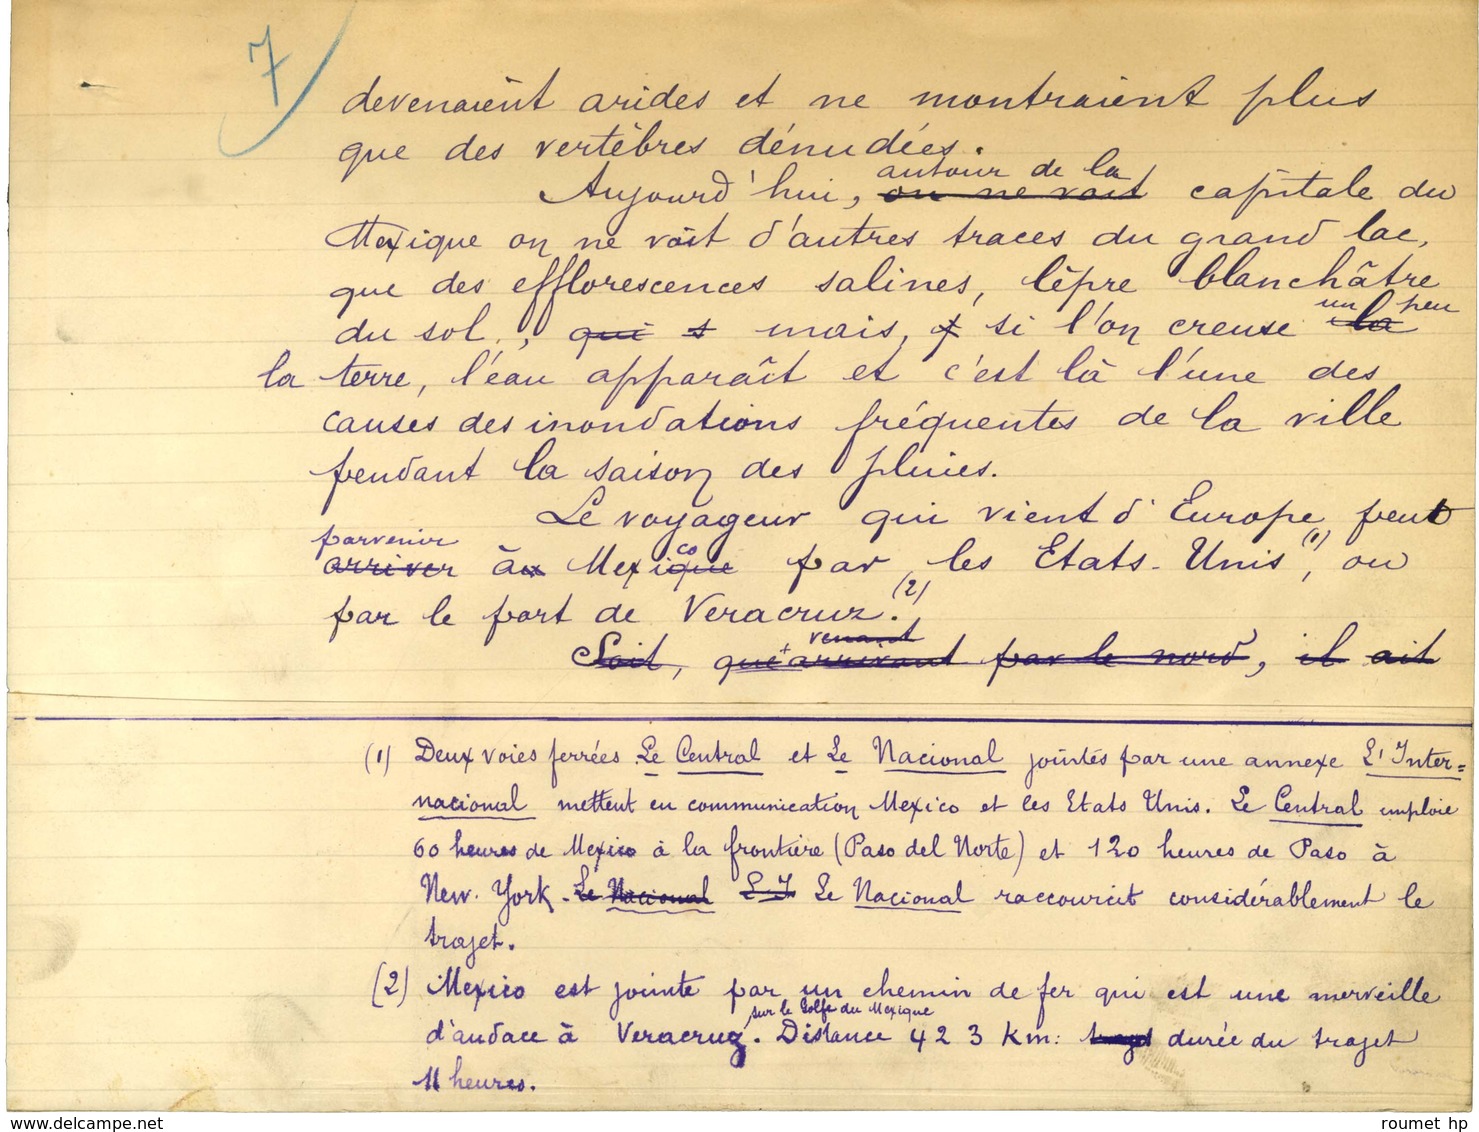 7
devenaient arides et ne montraient plus
que des vertèbres dénudées.
autour de la
Aujourd'hui, on ne voit capitale du
Mexique on ne voit d'autres traces du grand lac,
que des efflorescences salines, lèpre blanchâtre
un peu
du sol., qui s mais, si l'on creuse la
la terre, l'eau apparaît et c'est là l'une des
causes des inondations fréquentes de la ville
pendant la saison des pluies.
Le voyageur qui vient d'Europe, peut
parvenir co
arriver àu Mexique par les Etats-Unis (1), ou
par le port de Veracruz (2).
venant
Soit, que + arrivant par le nord, il ait
(1) Deux voies ferrées Le Central et Le Nacional jointés par une annexe L'Inter=
nacional mettent en communication Mexico et les Etats Unis. Le Central emploie
60 heures de Mexico à la frontière (Paso del Norte) et 120 heures de Paso à
New-York. Le Nacional L'I Le Nacional raccourcit considérablement le
trajet.
(2) Mexico est jointe par un chemin de fer qui est une merveille
sur le Golfe du Mexique
d'audace à Veracruz. Distance 423 Km: trajet durée du trajet
11 heures.
delcampe.net
roumet hp